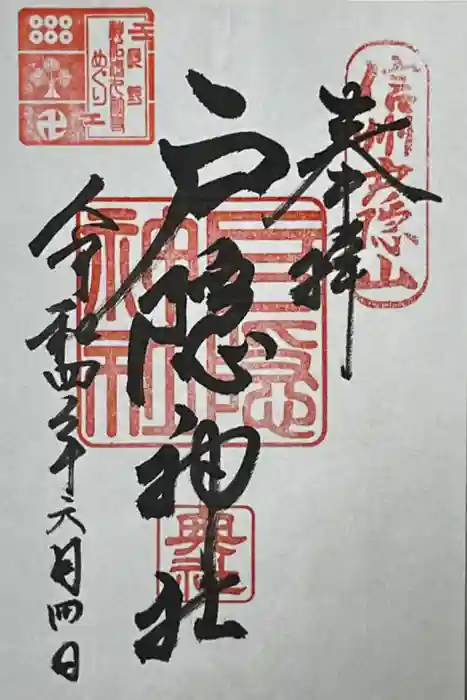 奉拝
信州戸隠山
戸隠神社
戸隠神社
奥社
令和四年六月四日
めぐり